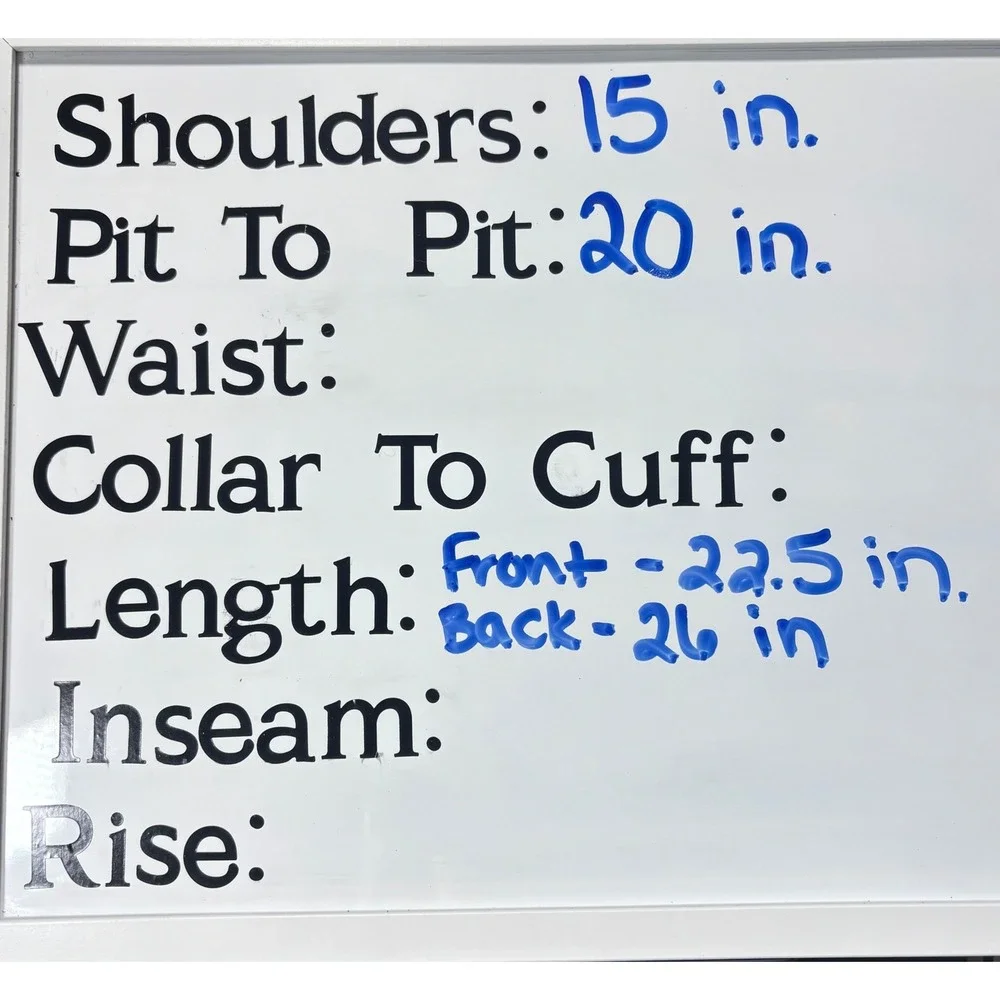 Shoulders: 15 in.
Pit To Pit: 20 in.
Waist:
Collar To Cuff:
Length: Front - 22.5 in.
Back - 26 in
Inseam:
Rise: